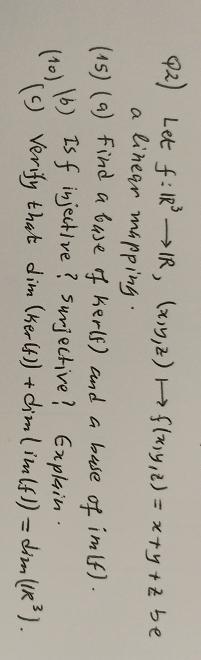 Q2) Let f: ℝ³ → ℝ, (x,y,z) ↦ f(x,y,z) = x + y + z be
a linear mapping.
(15) (a) Find a base of Ker(f) and a base of im(f).
(b) Is f injective? surjective? Explain.
(10) (c) Verify that dim(Ker(f)) + dim(im(f)) = dim(ℝ³).